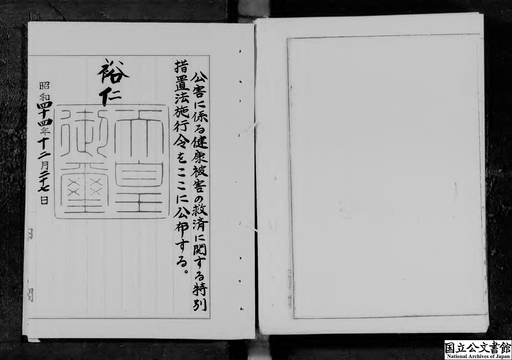 公害に係る健康被害の救済に関する特別
措置法施行令をここに公布する。
裕仁
天皇
御璽
昭和四十四年十二月二十七日
国立公文書館
National Archives of Japan